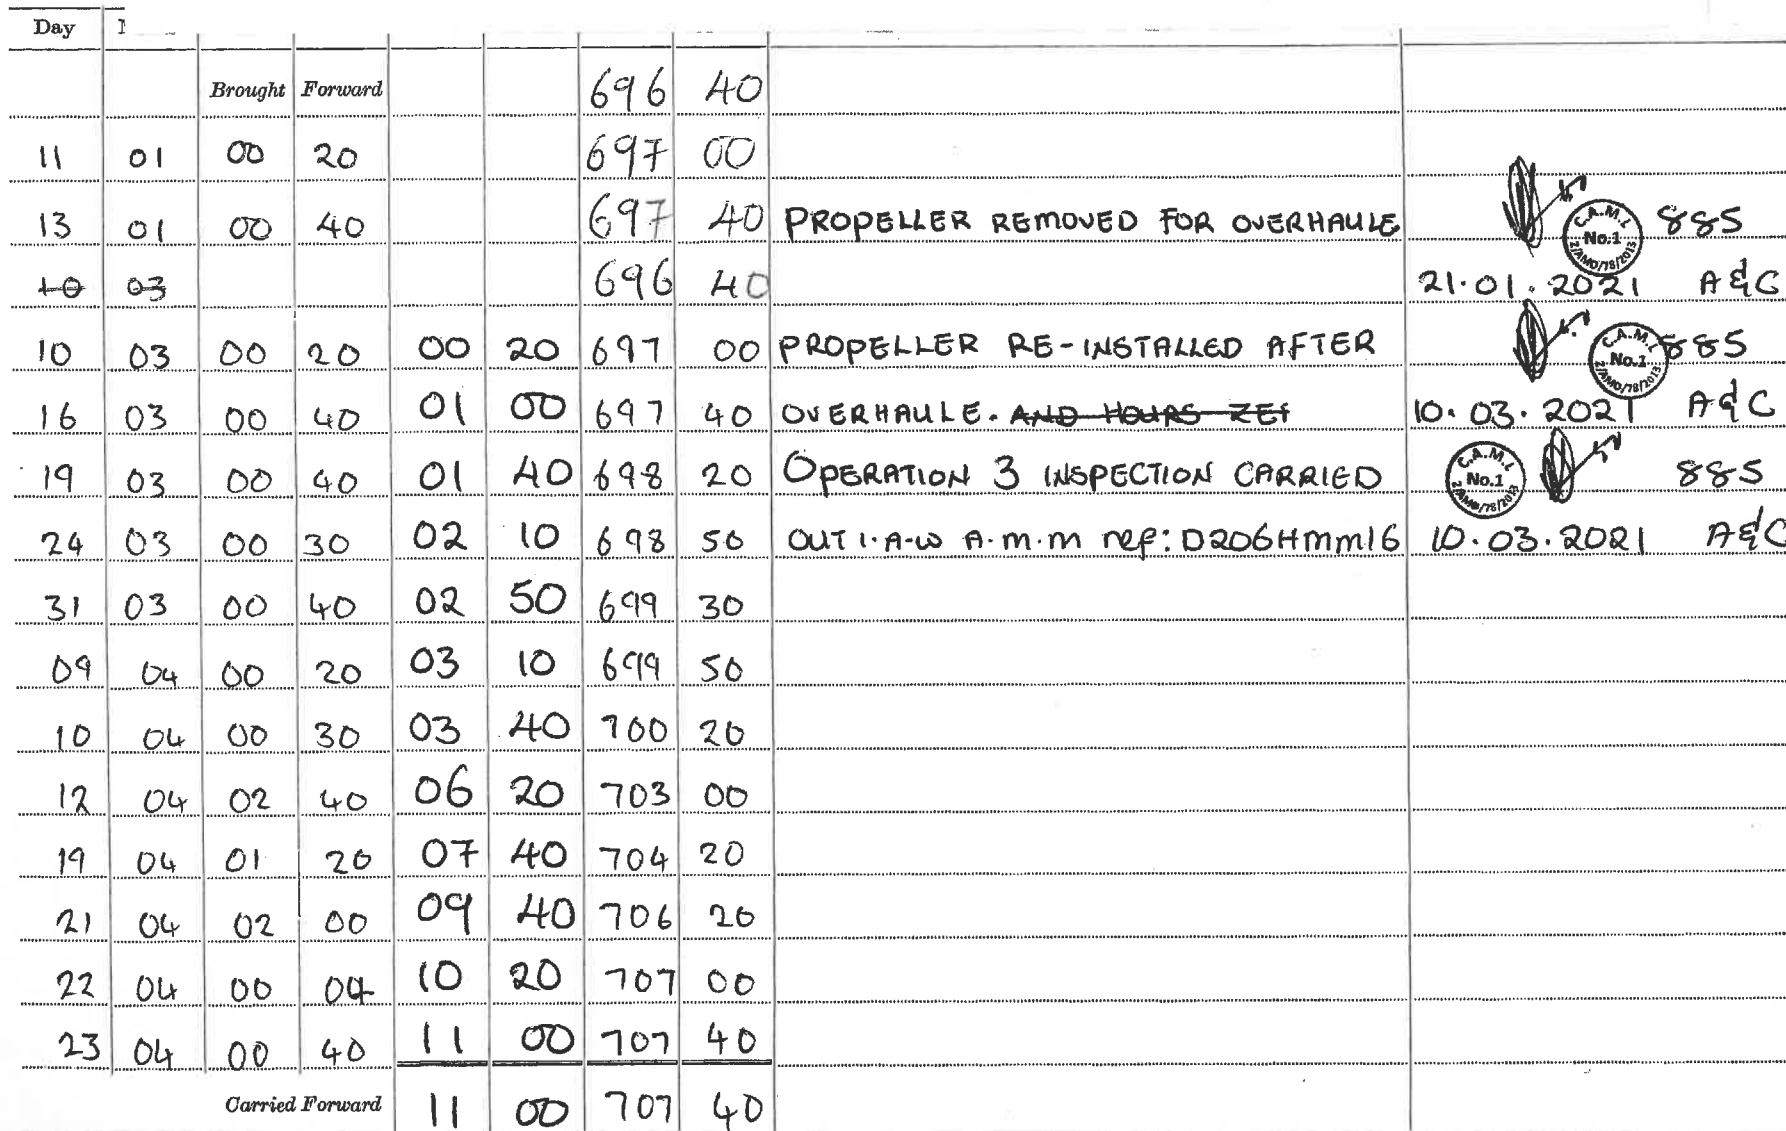 Day
Brought Forward 696 40
11 01 00 20 697 00
13 01 00 40 697 40 PROPELLER REMOVED FOR OVERHAULE C.A.M.L No.1 2/AMO/78/2013 885
10 03 696 40 21.01.2021 A&C
10 03 00 20 00 20 697 00 PROPELLER RE-INSTALLED AFTER C.A.M.L No.1 2/AMO/78/2013 885
16 03 00 40 01 00 697 40 OVERHAULE. AND HOURS 10.03.2021 A&C
19 03 00 40 01 40 698 20 OPERATION 3 INSPECTION CARRIED C.A.M.L No.1 2/AMO/78/2013 885
24 03 00 30 02 10 698 50 OUT I.A.W A.M.M REF: D206HMM16 10.03.2021 A&C
31 03 00 40 02 50 699 30
09 04 00 20 03 10 699 50
10 04 00 30 03 40 700 20
12 04 02 40 06 20 703 00
19 04 01 20 07 40 704 20
21 04 02 00 09 40 706 20
22 04 00 04 10 20 707 00
23 04 00 40 11 00 707 40
Carried Forward 11 00 707 40